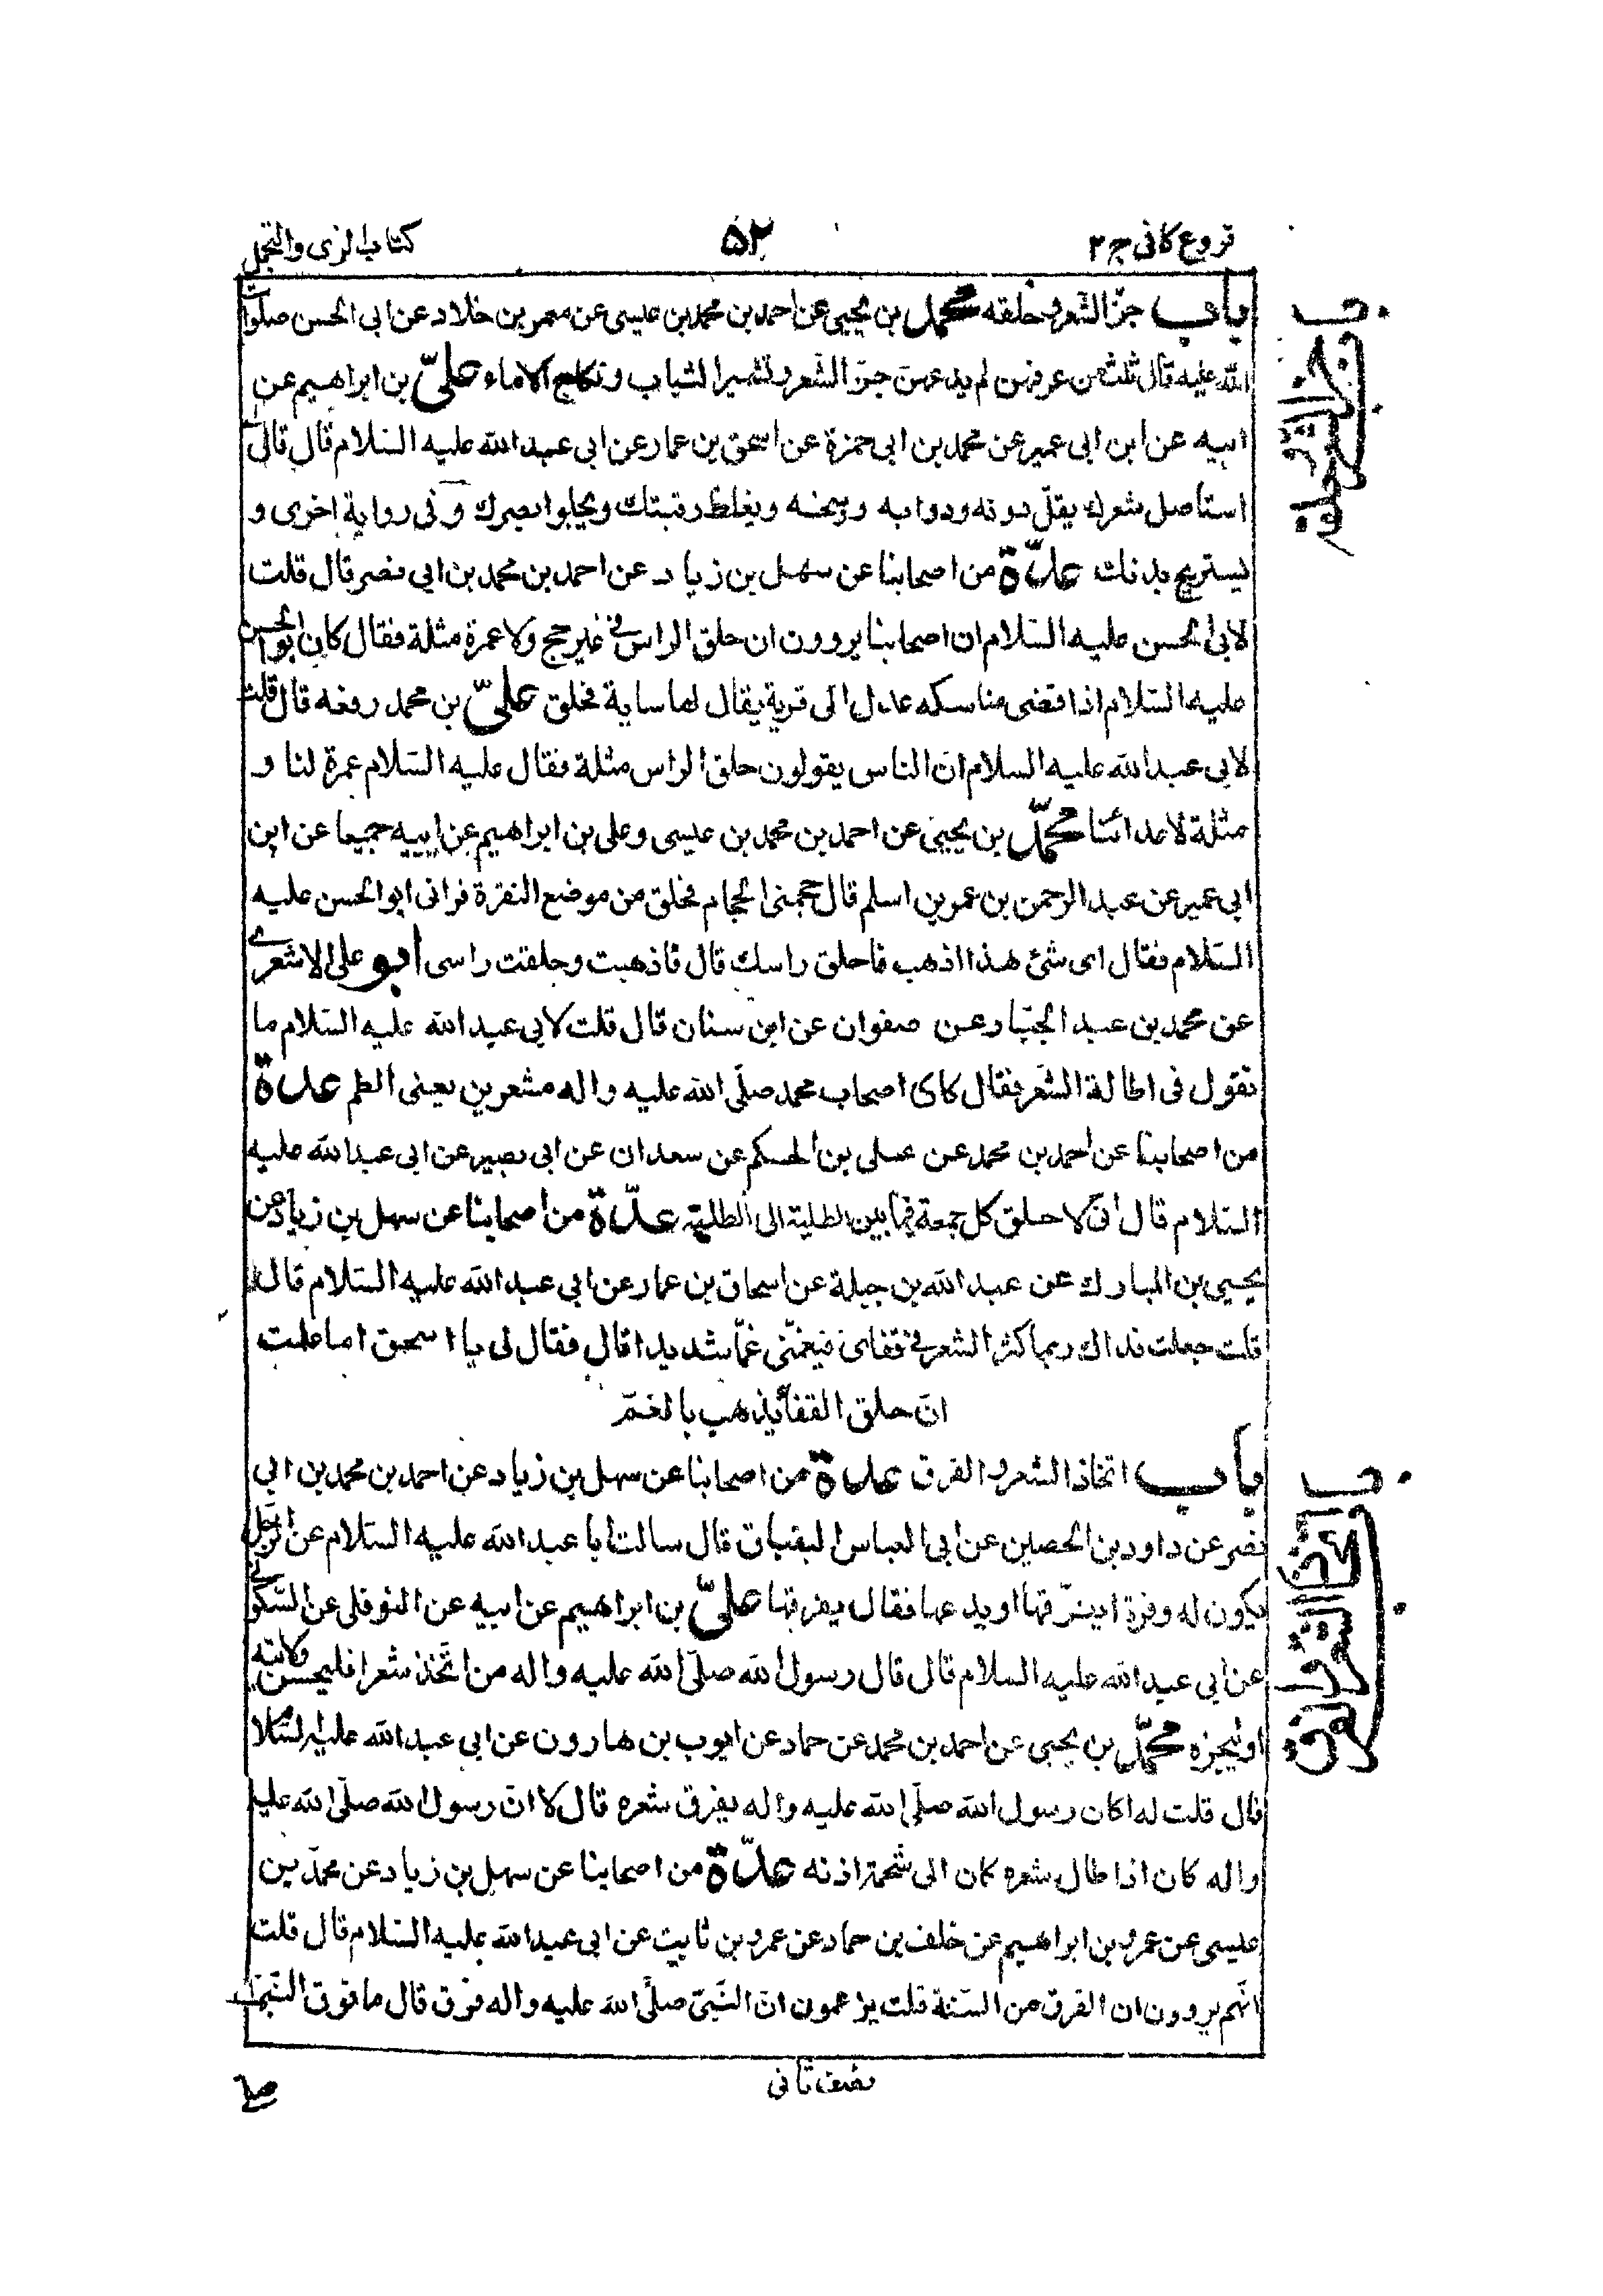 فروع کافی ج ۲
۵۲
کتاب الزی والتجمل
باب جزّ الشعر وحلقه محمد بن یحیی عن احمد بن محمد بن عیسی عن معمر بن خلاد عن ابی الحسن صلوات
الله علیه قال ثلث من عرفهن لم یدعهن جزّ الشعر وتشمیر الثیاب ونکاح الاماء علیّ بن ابراهیم عن
ابیه عن ابن ابی عمیر عن محمد بن ابی حمزة عن اسحق بن عمار عن ابی عبد الله علیه السلام قال قال لی
استاصل شعرك یقلّ درنه ودوابه ووسخه ویغلظ رقبتك ویجلو بصرك وفی روایة اخری و
یستریح بدنك عدّة من اصحابنا عن سهل بن زیاد عن احمد بن محمد بن ابی نصر قال قلت
لابی الحسن علیه السلام ان اصحابنا یروون ان حلق الراس فی غیر حج ولا عمرة مثلة فقال کان ابو الحسن
علیه السلام اذا قضی مناسکه عدل الی قریة یقال لها سایة فحلق علیّ بن محمد رفعه قال قلت
لابی عبد الله علیه السلام انّ الناس یقولون حلق الراس مثلة فقال علیه السلام عمرة لنا و
مثلة لاعدائنا محمّد بن یحیی عن احمد بن محمد بن عیسی وعلی بن ابراهیم عن ابیه جمیعا عن ابن
ابی عمیر عن عبد الرحمن بن عمر بن اسلم قال حجمنی الحجام فحلق من موضع النقرة فرانی ابو الحسن علیه
السّلام فقال ای شئ هذا اذهب فاحلق راسك قال فاذهبت وحلقت راسی ابو علی الاشعری
عن محمد بن عبد الجبّار عن صفوان عن ابن سنان قال قلت لابی عبد الله علیه السّلام ما
تقول فی اطالة الشّعر فقال کان اصحاب محمد صلّی الله علیه واله مشعرین یعنی الطم عدة
من اصحابنا عن احمد بن محمد عن علی بن الحکم عن سعدان عن ابی بصیر عن ابی عبد الله علیه
السّلام قال انّی لاحلق کل جمعة فیما بین الطلیة الی الطلیة عدّة من اصحابنا عن سهل بن زیاد عن
یحیی بن المبارك عن عبد الله بن جبلة عن اسحاق بن عمار عن ابی عبد الله علیه السّلام قال
قلت جعلت فداك ربما کثر الشعر فی قفای فیغمّنی غمّا شدیدا قال فقال لی یا اسحق اما علمت
انّ حلق القفا یذهب بالغمّ
باب اتخاذ الشعر والفرق عدة من اصحابنا عن سهل بن زیاد عن احمد بن محمد بن ابی
نصر عن داود بن الحصین عن ابی العباس البقباق قال سالت ابا عبد الله علیه السّلام عن الرجل
یکون له وفرة ایفرّقها او یدعها فقال یفرقها علیّ بن ابراهیم عن ابیه عن النوفلی عن السّکونی
عن ابی عبد الله علیه السلام قال قال رسول الله صلّی الله علیه واله من اتّخذ شعرا فلیحسن ولایته
او لیجزه محمّد بن یحیی عن احمد بن محمد عن حماد عن ایوب بن هارون عن ابی عبد الله علیه السّلام
قال قلت له اکان رسول الله صلّی الله علیه واله یفرق شعره قال لا انّ رسول الله صلّی الله علیه
واله کان اذا طال شعره کان الی شحمة اذنه عدّة من اصحابنا عن سهل بن زیاد عن محمّد بن
عیسی عن عمرو بن ابراهیم عن خلف بن حماد عن عمرو بن ثابت عن ابی عبد الله علیه السّلام قال قلت
انّهم یروون ان الفرق من السّنة قلت یزعمون انّ النّبیّ صلّی الله علیه واله فرق قال ما فرق النّبیّ
نصف ثانی
صلی